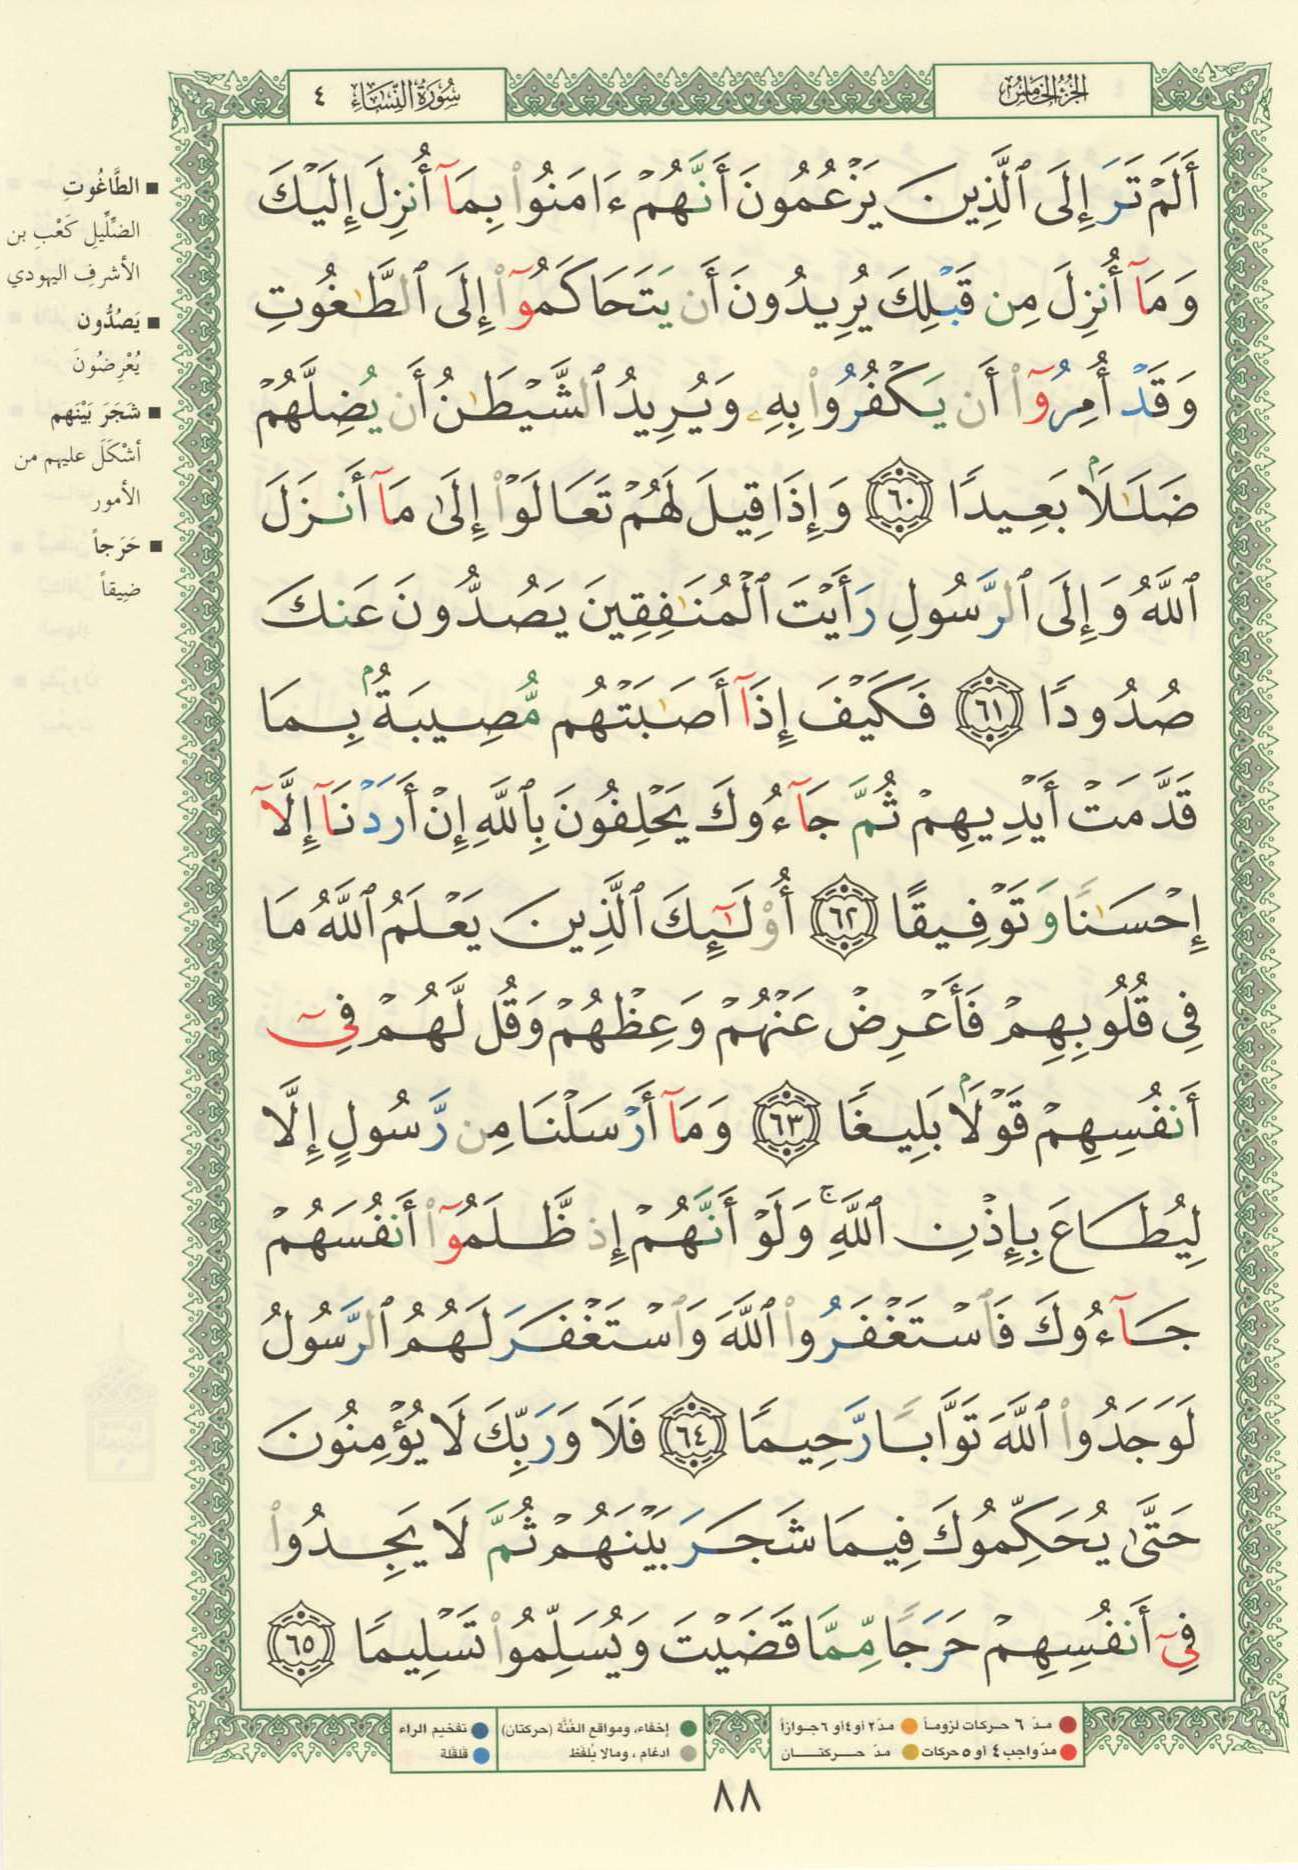 الجزء الخامس
سورة النساء ٤
أَلَمْ تَرَ إِلَى ٱلَّذِينَ يَزْعُمُونَ أَنَّهُمْ ءَامَنُوا۟ بِمَآ أُنزِلَ إِلَيْكَ
وَمَآ أُنزِلَ مِن قَبْلِكَ يُرِيدُونَ أَن يَتَحَاكَمُوٓا۟ إِلَى ٱلطَّٰغُوتِ
وَقَدْ أُمِرُوٓا۟ أَن يَكْفُرُوا۟ بِهِۦ وَيُرِيدُ ٱلشَّيْطَٰنُ أَن يُضِلَّهُمْ
ضَلَٰلًۢا بَعِيدًا ٦٠ وَإِذَا قِيلَ لَهُمْ تَعَالَوْا۟ إِلَىٰ مَآ أَنزَلَ
ٱللَّهُ وَإِلَى ٱلرَّسُولِ رَأَيْتَ ٱلْمُنَٰفِقِينَ يَصُدُّونَ عَنكَ
صُدُودًا ٦١ فَكَيْفَ إِذَآ أَصَٰبَتْهُم مُّصِيبَةٌۢ بِمَا
قَدَّمَتْ أَيْدِيهِمْ ثُمَّ جَآءُوكَ يَحْلِفُونَ بِٱللَّهِ إِنْ أَرَدْنَآ إِلَّآ
إِحْسَٰنًا وَتَوْفِيقًا ٦٢ أُو۟لَٰٓئِكَ ٱلَّذِينَ يَعْلَمُ ٱللَّهُ مَا
فِى قُلُوبِهِمْ فَأَعْرِضْ عَنْهُمْ وَعِظْهُمْ وَقُل لَّهُمْ فِىٓ
أَنفُسِهِمْ قَوْلًۢا بَلِيغًا ٦٣ وَمَآ أَرْسَلْنَا مِن رَّسُولٍ إِلَّا
لِيُطَاعَ بِإِذْنِ ٱللَّهِ ۚ وَلَوْ أَنَّهُمْ إِذ ظَّلَمُوٓا۟ أَنفُسَهُمْ
جَآءُوكَ فَٱسْتَغْفَرُوا۟ ٱللَّهَ وَٱسْتَغْفَرَ لَهُمُ ٱلرَّسُولُ
لَوَجَدُوا۟ ٱللَّهَ تَوَّابًا رَّحِيمًا ٦٤ فَلَا وَرَبِّكَ لَا يُؤْمِنُونَ
حَتَّىٰ يُحَكِّمُوكَ فِيمَا شَجَرَ بَيْنَهُمْ ثُمَّ لَا يَجِدُوا۟
فِىٓ أَنفُسِهِمْ حَرَجًا مِّمَّا قَضَيْتَ وَيُسَلِّمُوا۟ تَسْلِيمًا ٦٥
■ الطَّاغُوتِ
الضِّلِّيلِ كَعْبِ بن
الأشرفِ اليهودي
■ يَصُدُّون
يُعْرِضُونَ
■ شَجَرَ بَيْنَهم
أشْكَلَ عليهم من
الأمور
■ حَرَجاً
ضِيقاً
مدّ ٦ حركات لزوماً ● مدّ ٢ أو ٤ أو ٦ جوازاً
مدّ واجب ٤ أو ٥ حركات ● مدّ حركتان
إخفاء، ومواقع الغُنَّة (حركتان) ● تفخيم الراء
ادغام، ومالا يُلفظ ● قلقلة
٨٨